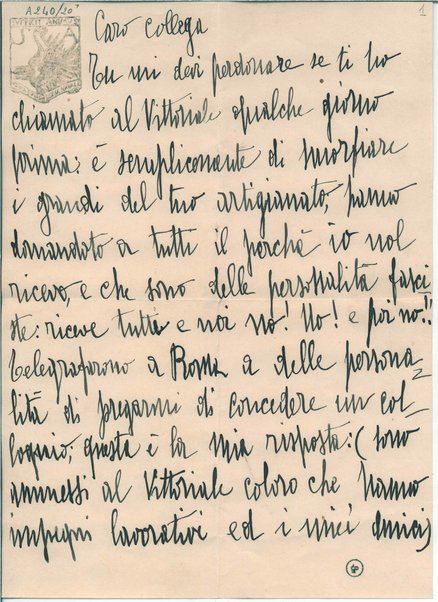 A240/20
1
Caro collega
Tu mi devi perdonare se ti ho
chiamato al Vittoriale qualche giorno
prima: è semplicemente di smorfiare
i grandi del tuo artigianato, hanno
domandato a tutti il perchè io nol
ricevo, e che sono delle personalità fasci
ste: riceve tutti e noi no! No! e poi no!!
Telegrafarono a Roma a delle persona-
lità di pregarmi di concedere un col-
loquio; questa è la mia risposta: (sono
ammessi al Vittoriale coloro che hanno
impegni lavorativi ed i miei amici)